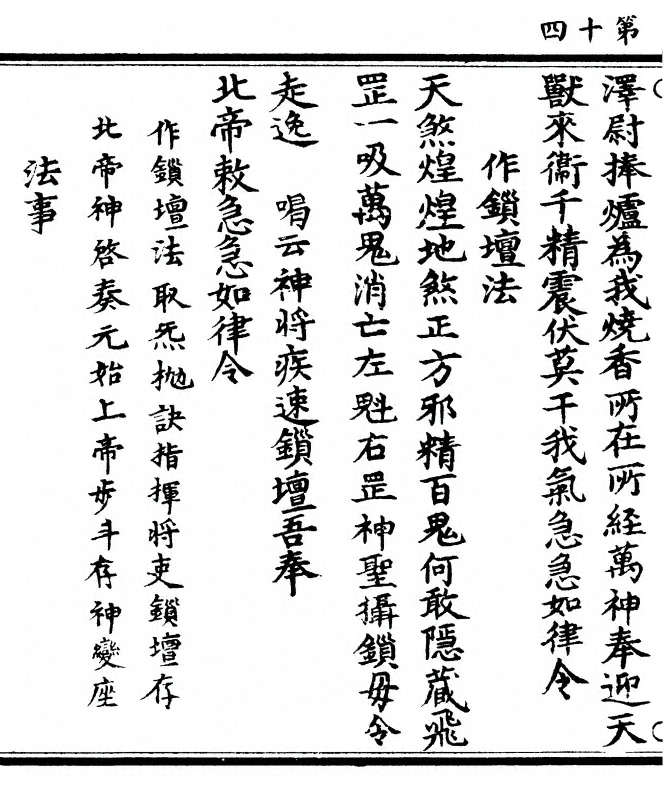 第十四
澤尉捧爐為我燒香所在所経萬神奉迎天
獸來衞千精震伏莫干我氣急急如律令
作鎖壇法
天煞煌煌地煞正方邪精百鬼何敢隱藏飛
罡一吸萬鬼消亡左魁右罡神聖攝鎖毋令
走逸　唱云神將疾速鎖壇吾奉
北帝敕急急如律令
作鎖壇法取炁抛訣指揮將吏鎖壇存
北帝神啓奏元始上帝步斗存神變座
法事